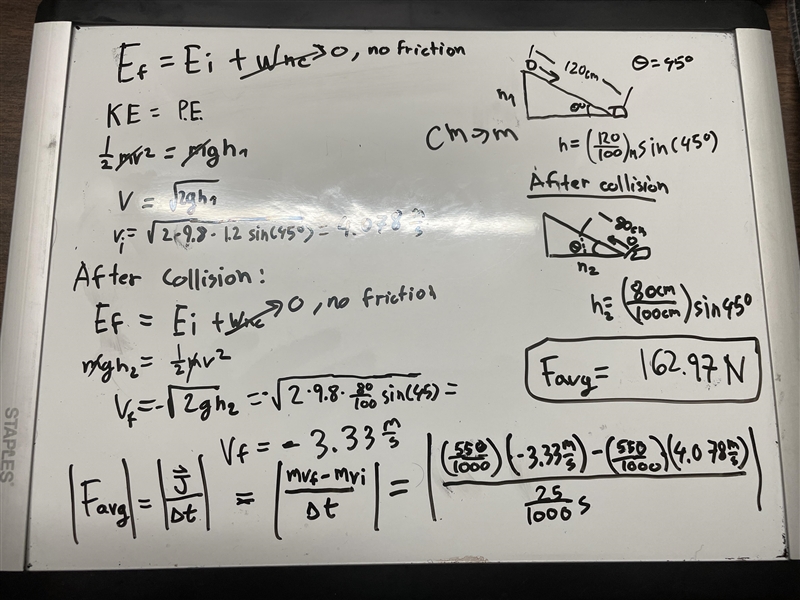 E_f = E_i + W_nc → 0, no friction
KE = P.E.
½ mv² = mgh₁
V = √2gh₁
v_i = √2·9.8·1.2 sin(45°) = 4.078 m/s
After Collision:
E_f = E_i + W_nc → 0, no friction
mgh₂ = ½ mv²
V_f = -√2gh₂ = -√2·9.8·80/100 sin(45) =
V_f = -3.33 m/s
|F_avg| = |J⃗/Δt| = |(mv_f - mv_i)/Δt| = |((550/1000)(-3.33 m/s) - (550/1000)(4.078 m/s))/(25/1000 s)|
120cm
θ = 45°
h₁
θ°
Cm → m
h = (120/100)m sin(45°)
After collision
80cm
θ
h₂
h₂ = (80cm/100cm) sin 45°
F_avg = 162.97 N
STAPLES